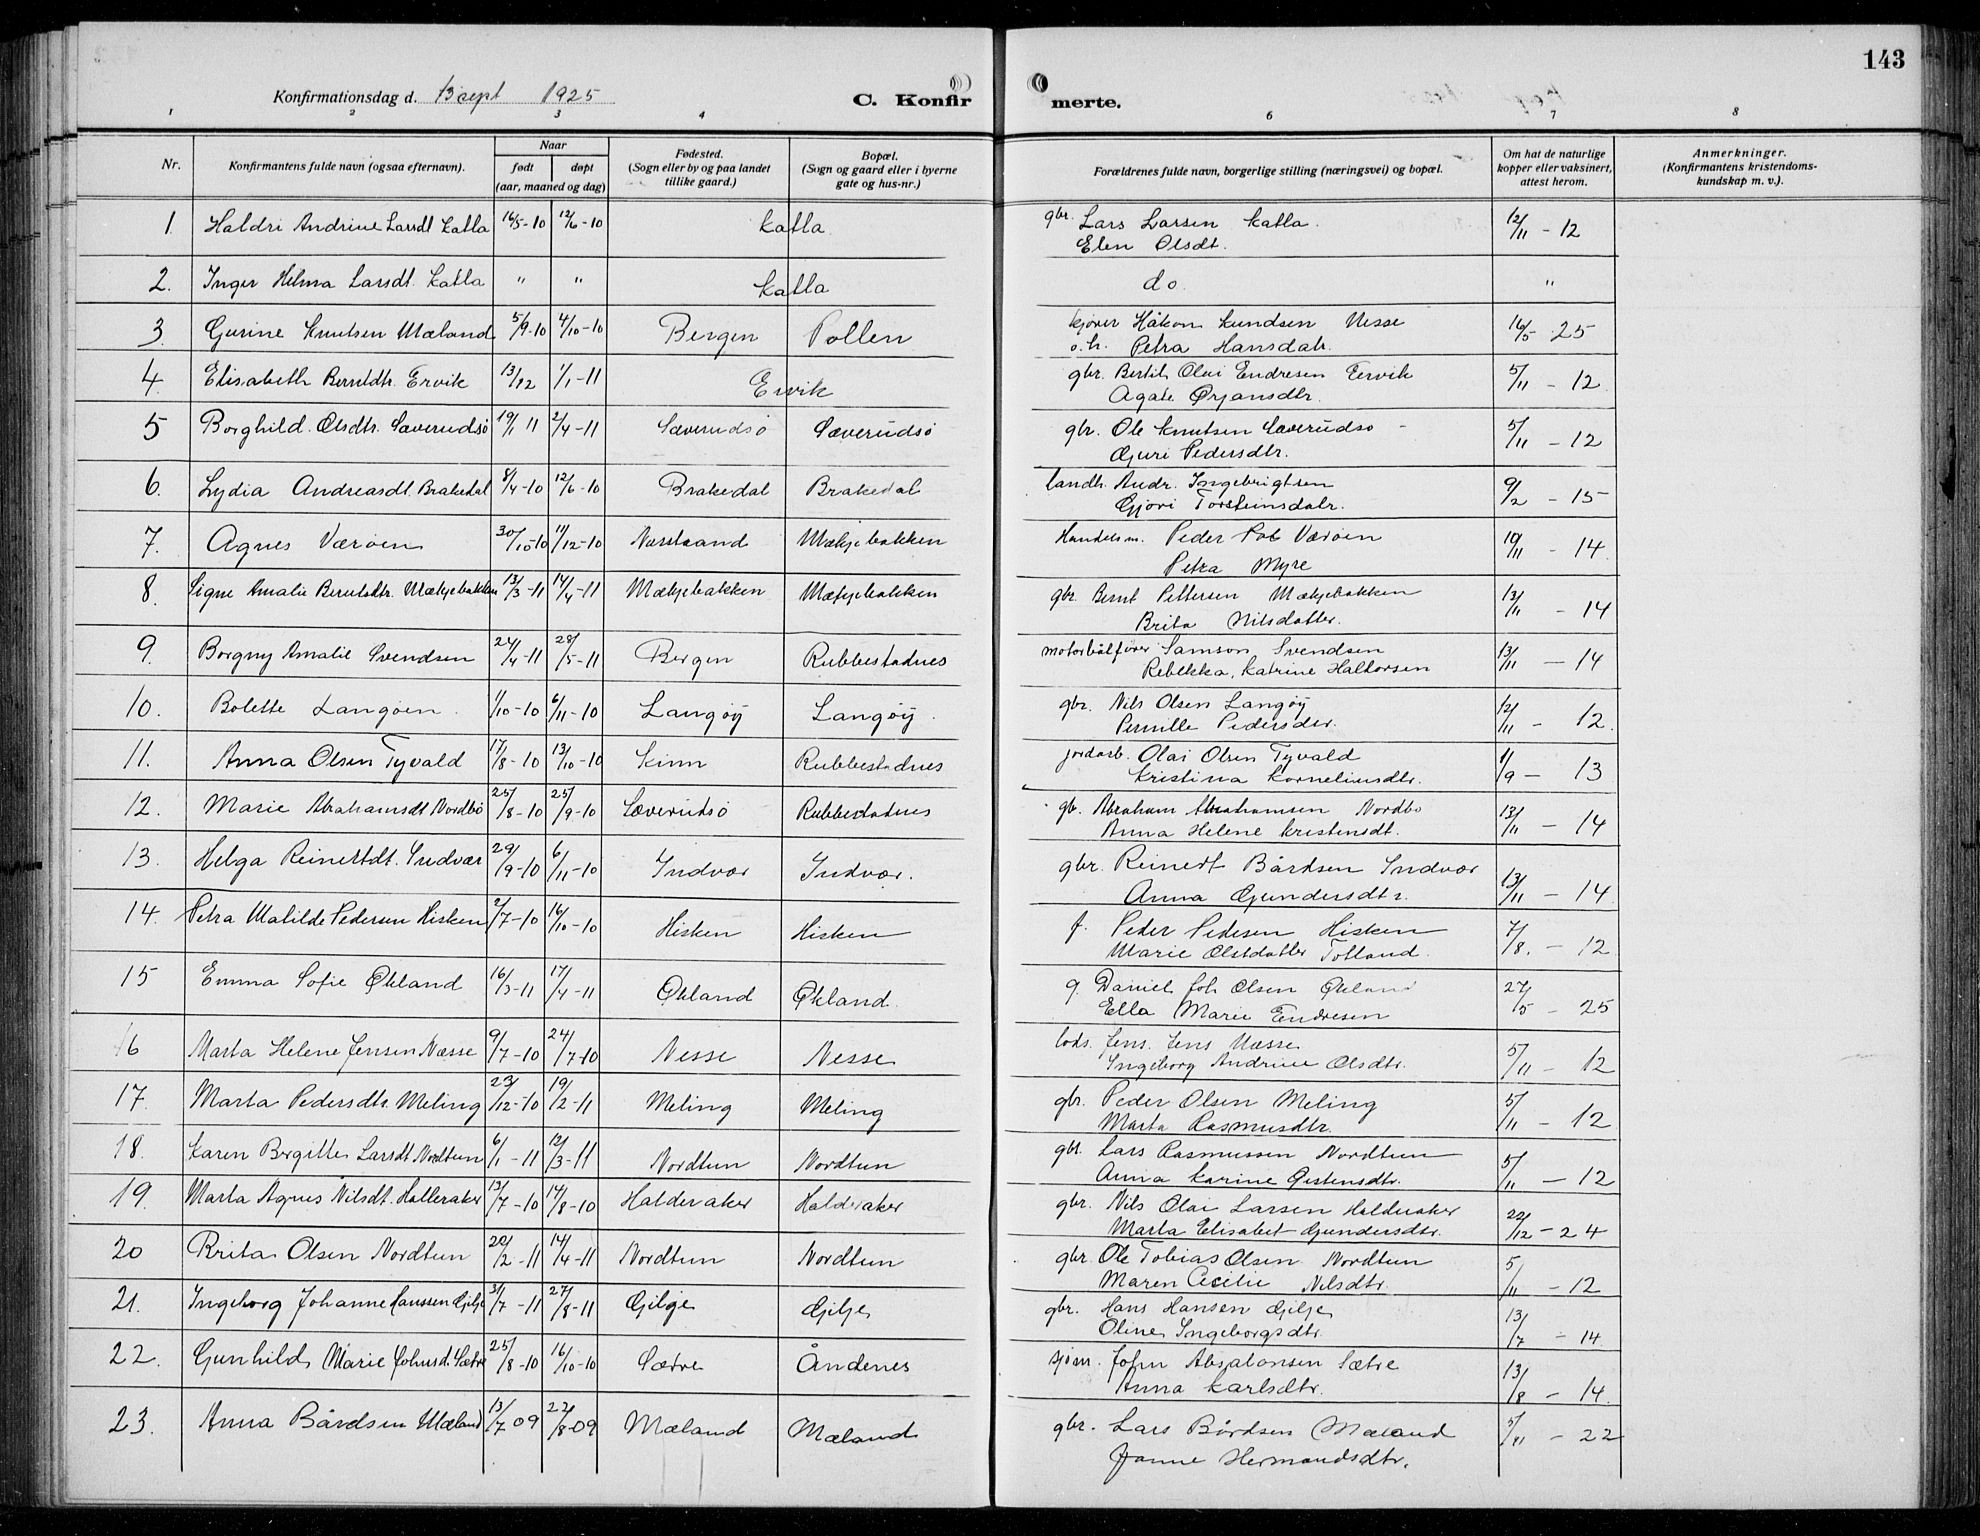 143
Konfirmationsdag d. 13 sept 1925
C. Konfirmerte.
1 2 3 4 6 7 8
Nr.
Konfirmantens fulde navn (ogsaa efternavn).
Naar
født døpt
(aar, maaned og dag)
Fødested.
(Sogn eller by og paa landet
tillike gaard.)
Bopæl.
(Sogn og gaard eller i byerne
gate og hus-nr.)
Forældrenes fulde navn, borgerlige stilling (næringsvei) og bopæl.
Om hat de naturlige
kopper eller vaksinert,
attest herom.
Anmerkninger.
(Konfirmantens kristendoms-
kundskap m. v.).
1. Haldri Andrine Larsdt Katla 16/5-10 12/6-10 Katla gbr. Lars Larsen Katla. 12/11 - 12
Elen Olsdt.
2. Inger Helma Larsdt. Katla " " Katla do. "
3. Gurine Knutsen Mæland 5/9-10 4/10-10 Bergen Pollen kjører Håkon Kundsen Nesse 16/5 - 25
o.h. Petra Hansdatr.
4. Elisabeth Berntdtr. Ervik 13/12 1/1-11 Ervik gbr. Bertil Olai Endresen Ervik 5/11 - 12
Agate Ørjansdtr.
5 Borghild Olsdtr. Sæverudsø 19/1 11 2/4-11 Sæverudsø Sæverudsø gbr. Ole Knutsen Sæverudsø 5/11 - 12
Guri Pedersdtr.
6. Lydia Andreasdt. Brakedal 8/4-10 12/6-10 Brakedal Brakedal landh. Andr. Ingebrigtsen 9/2 - 15
Gjøri Torsteinsdatr.
7. Agnes Værøen 30/10-10 11/12-10 Næsstrand Mækjebakken Handelsm. Peder Værøen 19/11 - 14
Petra Myre
8. Signe Amalie Berntsdtr. Mækjebakken 13/3-11 14/4-11 Mækjebakken Mækjebakken gbr. Bernt Pettersen Mækjebakken 13/11 - 14
Brita Nilsdatter.
9. Borgny Amalie Svendsen 24/4-11 28/5-11 Bergen Rubbestadnes motorbåtfører Samson Svendsen 13/11 - 14
Rebekka Katrine Haltorsen
10. Bolette Langøen. 1/10-10 6/11-10 Langøy Langøy. gbr. Nils Olsen Langøy 12/11 - 12.
Pernille Pedersdtr.
11. Anna Olsen Tyvald 17/8-10 13/10-10 Kinn Rubbestadnes jordarb. Olai Olsen Tyvald 1/9 - 13
Kristina Korneliusdtr.
12. Marie Abrahamsdt Nordbø 25/8-10 25/9-10 Sæverudsø Rubbestadnes gb. Abraham Abrahamsen Nordbø 13/11 - 14
Anna Helene Kristensdt.
13. Helga Reinertdt. Indvær 29/9-10 6/11-10 Indvær Indvær. gbr. Reinert Bårdsen Indvær 13/11 - 14
Anna Gundersdtr.
14. Petra Matilde Pedersen Hisken 2/7-10 16/10-10 Hisken Hisken f. Peder Pedesen Hisken 7/8. - 12
Marie Olsdatter Totland.
15 Emma Sofie Økland 16/3-11 17/4-11 Økland Økland. g. Daniel Joh. Olsen Økland 27/5 - 25
Ella Marie Endresen
16 Marta Helene Jensen Næsse 9/7-10 24/7-10 Nesse Nesse lods. Jens. Jens Næsse 5/11 - 12
Ingeborg Andrine Olsdtr.
17. Marta Pedersdtr. Meling 23/12-10 19/2-11 Meling Meling gbr. Peder Olsen Meling 5/11 - 12
Marta Rasmusdtr.
18. Karen Bergitte Larsdt Nordtun 6/1-11 12/3-11 Nordtun Nordtun gbr. Lars Rasmussen Nordtun 5/11 - 12
Anna Karine Gestensdtr.
19. Marta Agnes Nilsdt. Halleraker 13/7-10 14/8-10 Halderaker Halderaker gbr. Nils Olai Larsen Halderaker 22/12 - 24
Marta Elisabet Gundersdtr.
20 Brita Olsen Nordtun 20/2-11 14/4-11 Nordtun Nordtun gbr. Ole Tobias Olsen Nordtun 5/11 - 12
Maren Cecilie Nilsdtr.
21. Ingeborg Johanne Hanssen Gilje 31/7-11 27/8-11 Gilje Gilje gbr. Hans Hansen Gilje 13/7 - 14
Oline Ingeborgsdtr.
22. Gunhild Marie Johnsd. Sætre 25/8-10 16/10-10 Sætre Åndenes sjøm. John Absalonsen Sætre 13/8 - 14.
Anna Karlsdtr.
23. Anna Bårdsen Mæland 13/7 09 22/8-09 Mæland Mæland gbr. Lars Bårdsen Mæland 5/11 - 22
Janne Hermandsdtr.